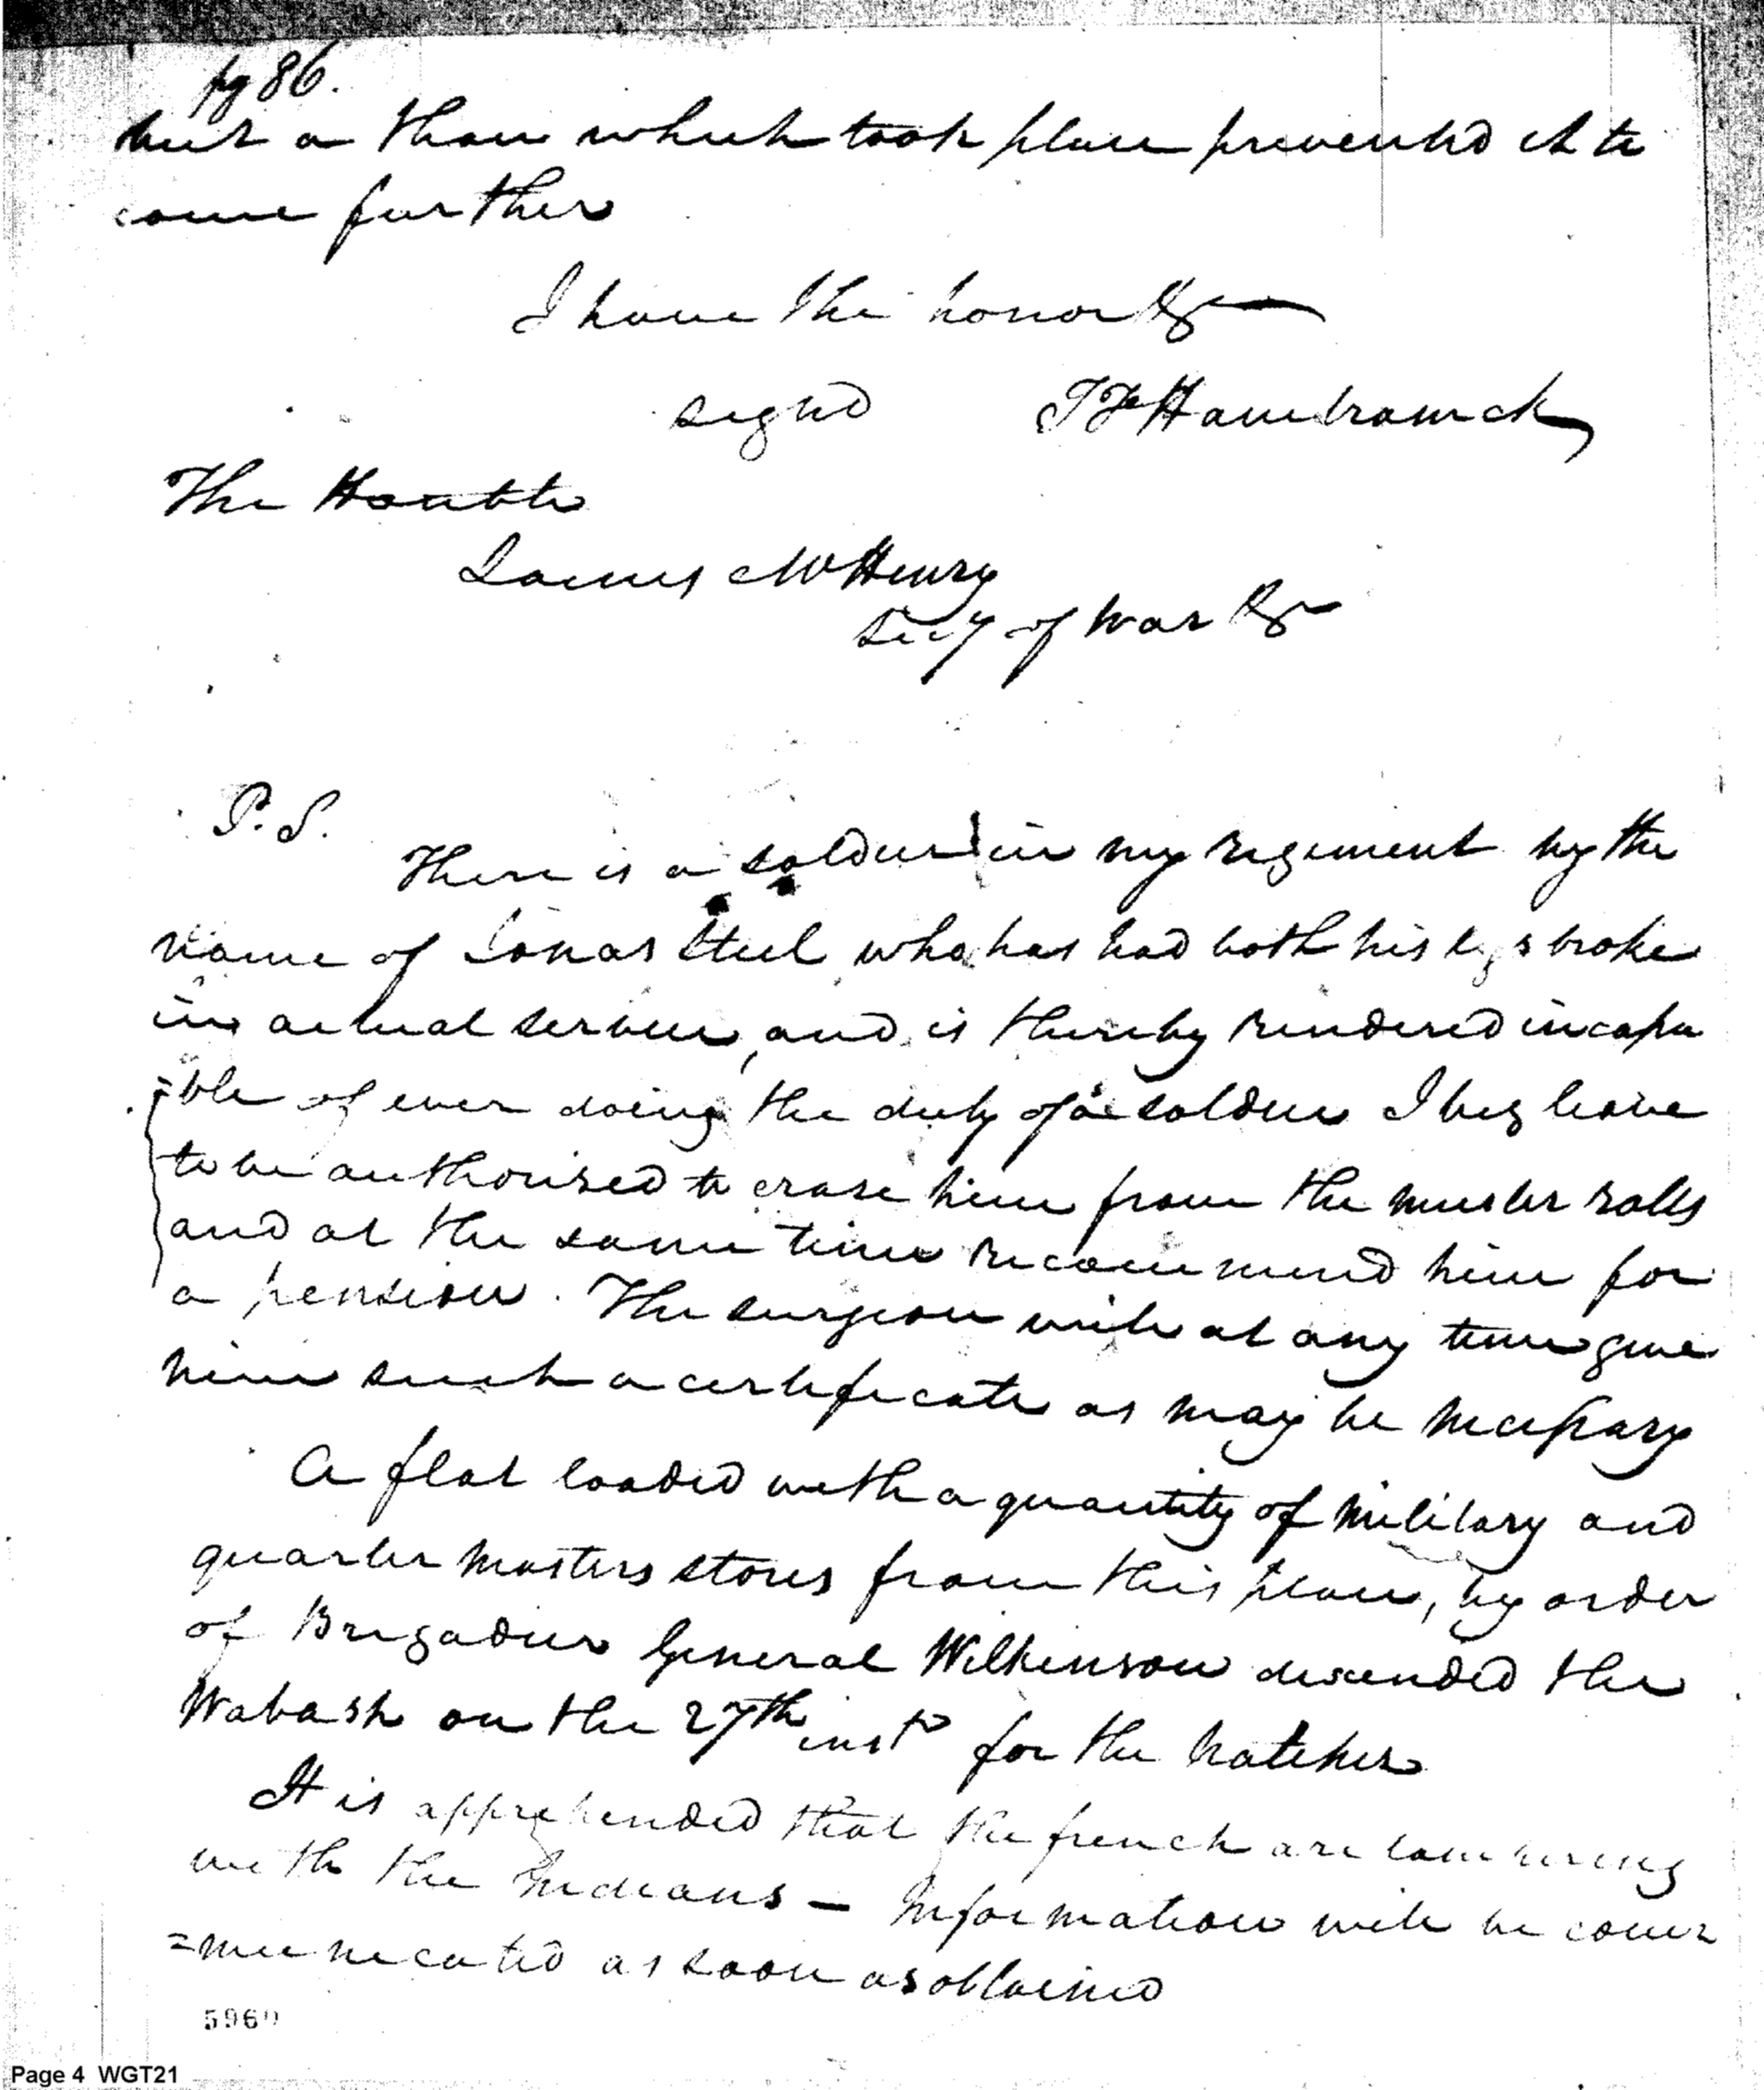 pg 86.
but a thaw which took place prevented it to
come further
I have the honor &c
signed J F Hamtramck
The Honble
James McHenry
Secy of War &c
P. S.
There is a soldier in my regiment by the
name of Jonas Steel who has had both his legs broke
in actual service, and is thereby rendered incapa
=ble of ever doing the duty of a soldier I beg leave
to be authorised to erase him from the muster rolls
and at the same time recommend him for
a pension. The surgeon will at any time give
him such a certificate as may be necessary
A flat loaded with a quantity of military and
quarter masters stores from this place, by order
of Brigadier General Wilkinson descended the
Wabash on the 27th inst for the Natchez
It is apprehended that the french are
with the Indians — Information will be com
=municated as soon as obtained
5960
Page 4 WGT21